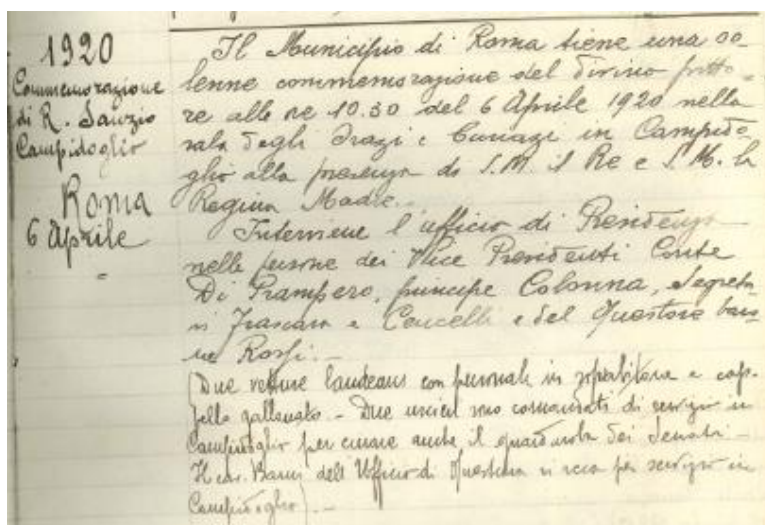 1920
Commemorazione
di R. Sanzio
Campidoglio
Roma
6 Aprile
Il Municipio di Roma tiene una so-
lenne commemorazione del divino pitto-
re alle ore 10.30 del 6 Aprile 1920 nella
sala degli Orazi e Curiazi in Campido-
glio alla presenza di S.M. il Re e S.M. la
Regina Madre.
Interviene l'ufficio di Presidenza
nelle persone dei Vice Presidenti Conte
Di Prampero, principe Colonna, Segreta-
ri Frascara e Cencelli e del Questore baro-
ne Rossi.-
(Due vetture landeaus con personale in e cap-
pello gallonato - Due uscieri sono comandati di servizio in
Campidoglio per curare anche il guardaroba dei Senatori -
Il cav. dell'Ufficio di Questura si reca per servizio in
Campidoglio).-